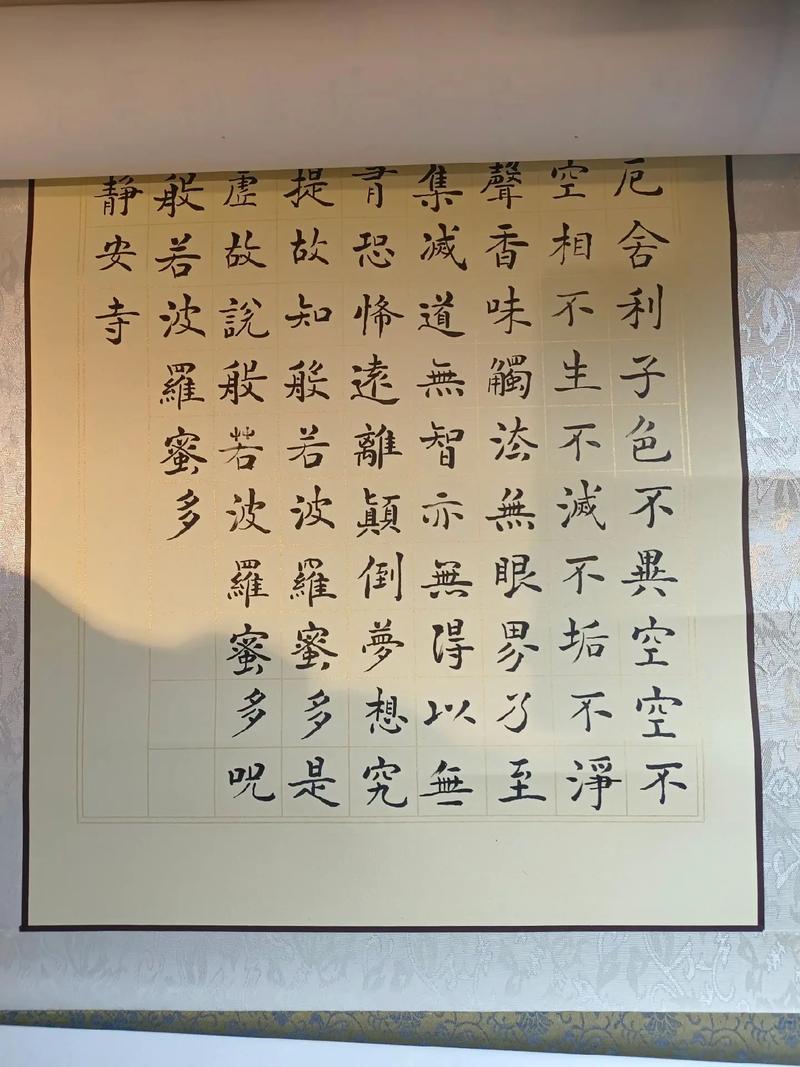 厄舍利子色不異空空不
空相不生不滅不垢不淨
聲香味觸法無眼界乃至
集滅道無智亦無得以無
有恐怖遠離顛倒夢想究
提故知般若波羅蜜多是
虛故說般若波羅蜜多呪
般若波羅蜜多
靜安寺